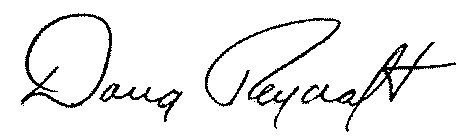 Doug Raycraft